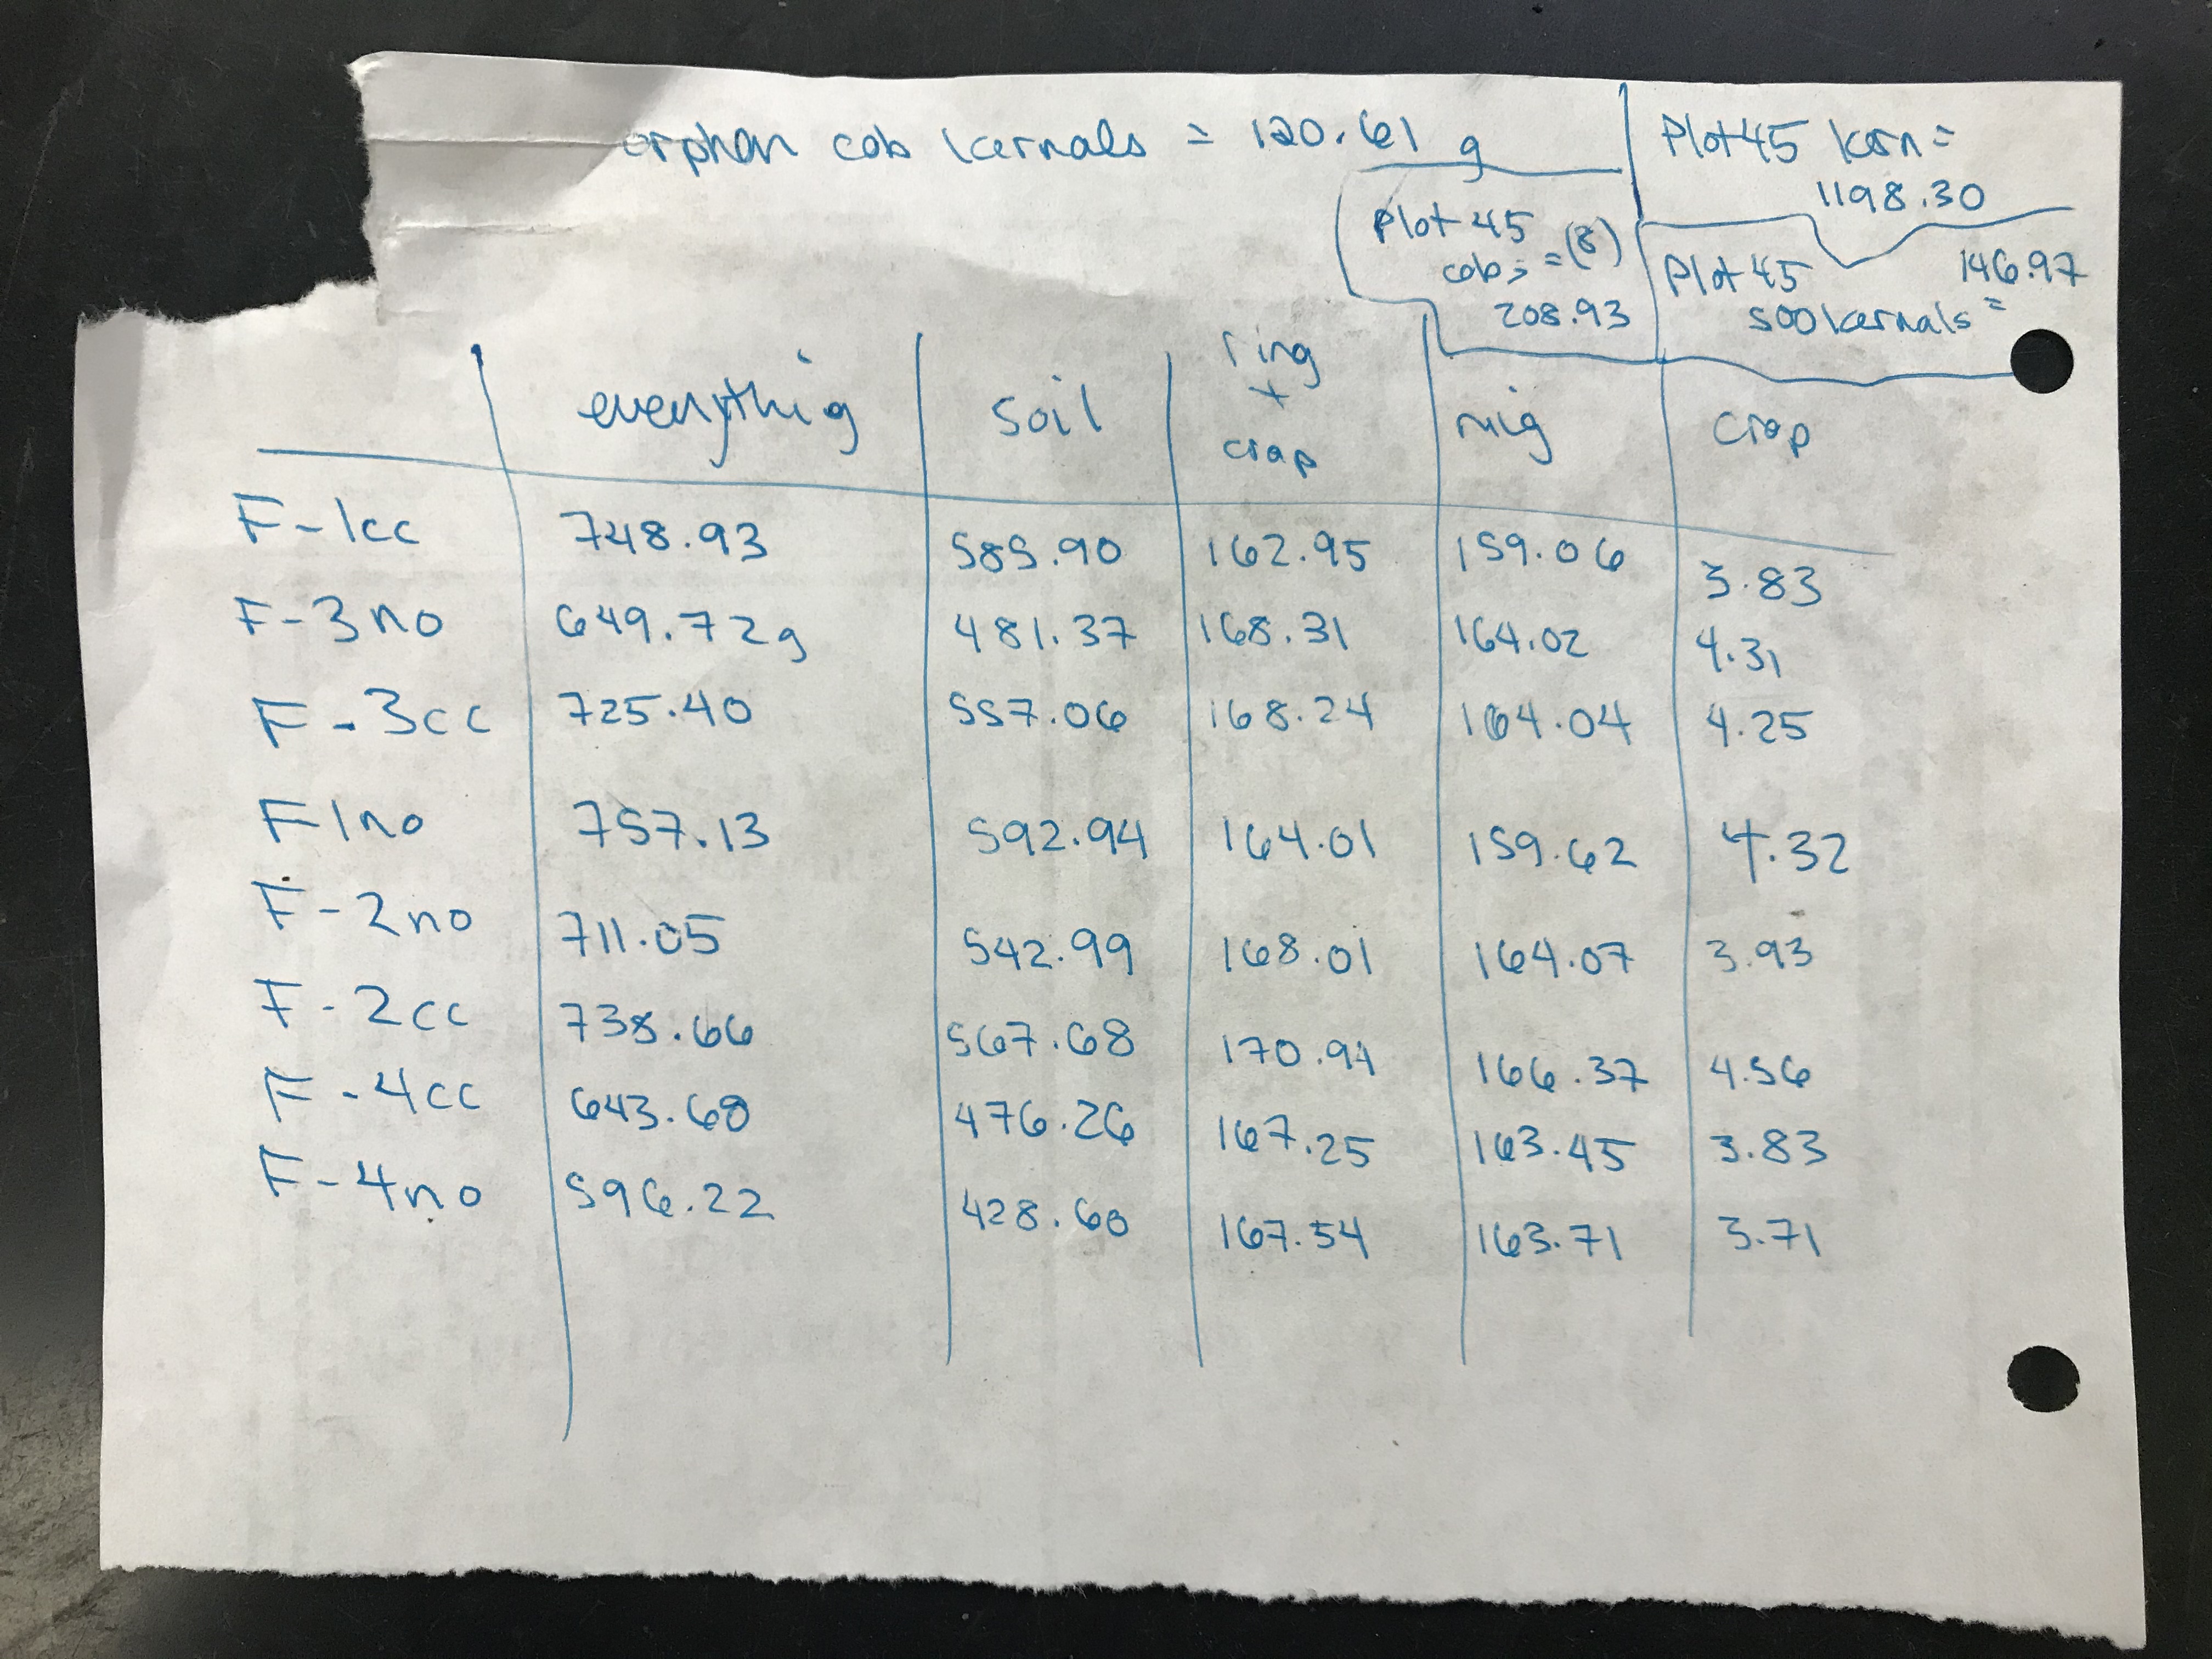 orphan cob kernals = 120.61 g
Plot 45 korn =
1198.30
Plot 45
cobs = (8)
208.93
Plot 45 146.97
500 kernals =
everythig soil ring + crap ring crap
F-1cc 748.93 585.90 162.95 159.06 3.83
F-3no 649.72g 481.37 168.31 164.02 4.31
F-3cc 725.40 557.06 168.24 164.04 4.25
F1no 757.13 592.94 164.01 159.62 4.32
F-2no 711.05 542.99 168.01 164.07 3.93
F-2cc 738.66 567.68 170.94 166.37 4.56
F-4cc 643.68 476.26 167.25 163.45 3.83
F-4no 596.22 428.60 167.54 163.71 3.71